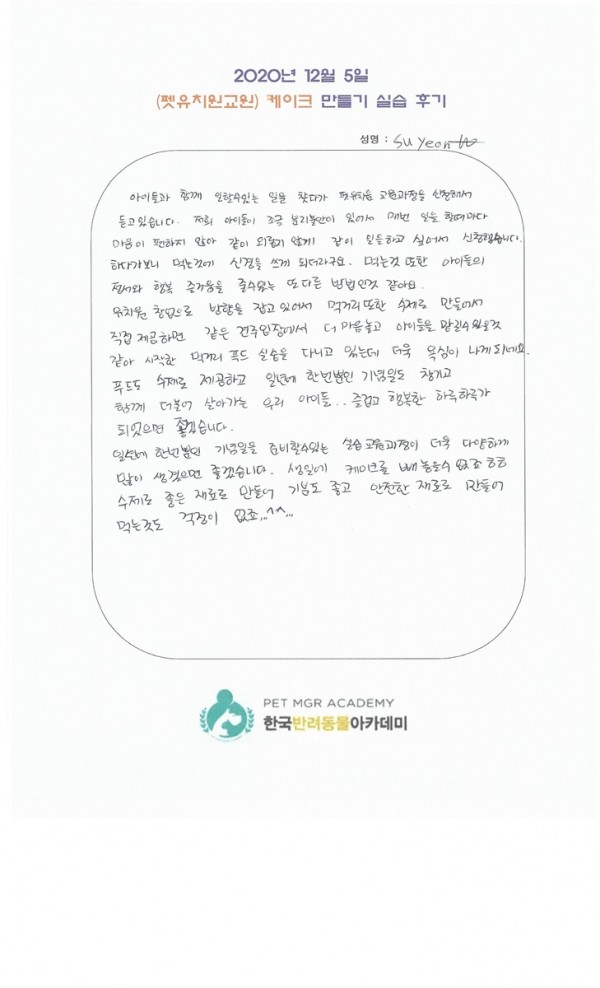 2020년 12월 5일
(펫유치원교원) 케이크 만들기 실습 후기
성명 : Su yeon
아이들과 함께 일할수있는 일을 찾다가 펫유치원 교원과정을 신청해서
듣고있습니다. 저희 아이들이 조금 분리불안이 있어서 매번 일을 할때마다
마음이 편하지 않아 같이 외롭지 않게 같이 일을하고 싶어서 신청했습니다.
하다가보니 먹는것에 신경을 쓰게 되더라구요. 먹는것 또한 아이들의
정서와 행복 즐거움을 줄수있는 또 다른 방법인것 같아요.
유치원 창업으로 방향을 잡고 있어서 먹거리 또한 수제로 만들어서
직접 제공하면 같은 견주입장에서 더 마음놓고 아이들을 맡길수있을것
같아 시작한 먹거리 푸드 실습을 다니고 있는데 더욱 욕심이 나게 되네요.
푸드도 수제로 제공하고 일년에 한번뿐인 기념일도 챙기고
함께 더불어 살아가는 우리 아이들.. 즐겁고 행복한 하루하루가
되었으면 좋겠습니다.
일년에 한번뿐인 기념일을 준비할수있는 실습 교육과정이 더욱 다양하게
많이 생겼으면 좋겠습니다. 생일에 케이크를 빼놓을수 없죠 ㅎㅎ
수제로 좋은 재료로 만들어 기분도 좋고 안전한 재료로 만들어
먹는것도 걱정이 없죠...^^...
PET MGR ACADEMY
한국반려동물아카데미